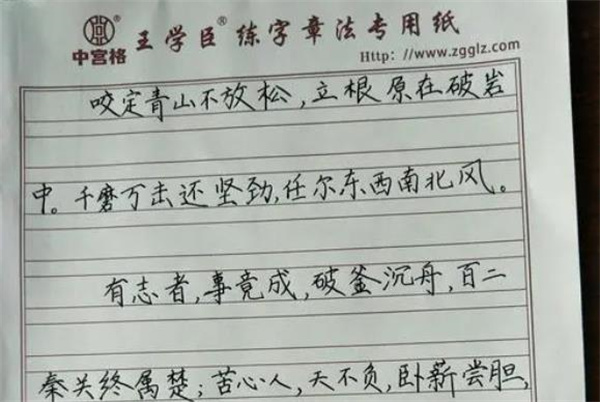 中宫格 王学臣® 练字章法专用纸
Http: //www.zgglz.com
咬定青山不放松,立根原在破岩
中。千磨万击还坚劲,任尔东西南北风。
有志者,事竟成,破釜沉舟,百二
秦关终属楚;苦心人,天不负,卧薪尝胆,